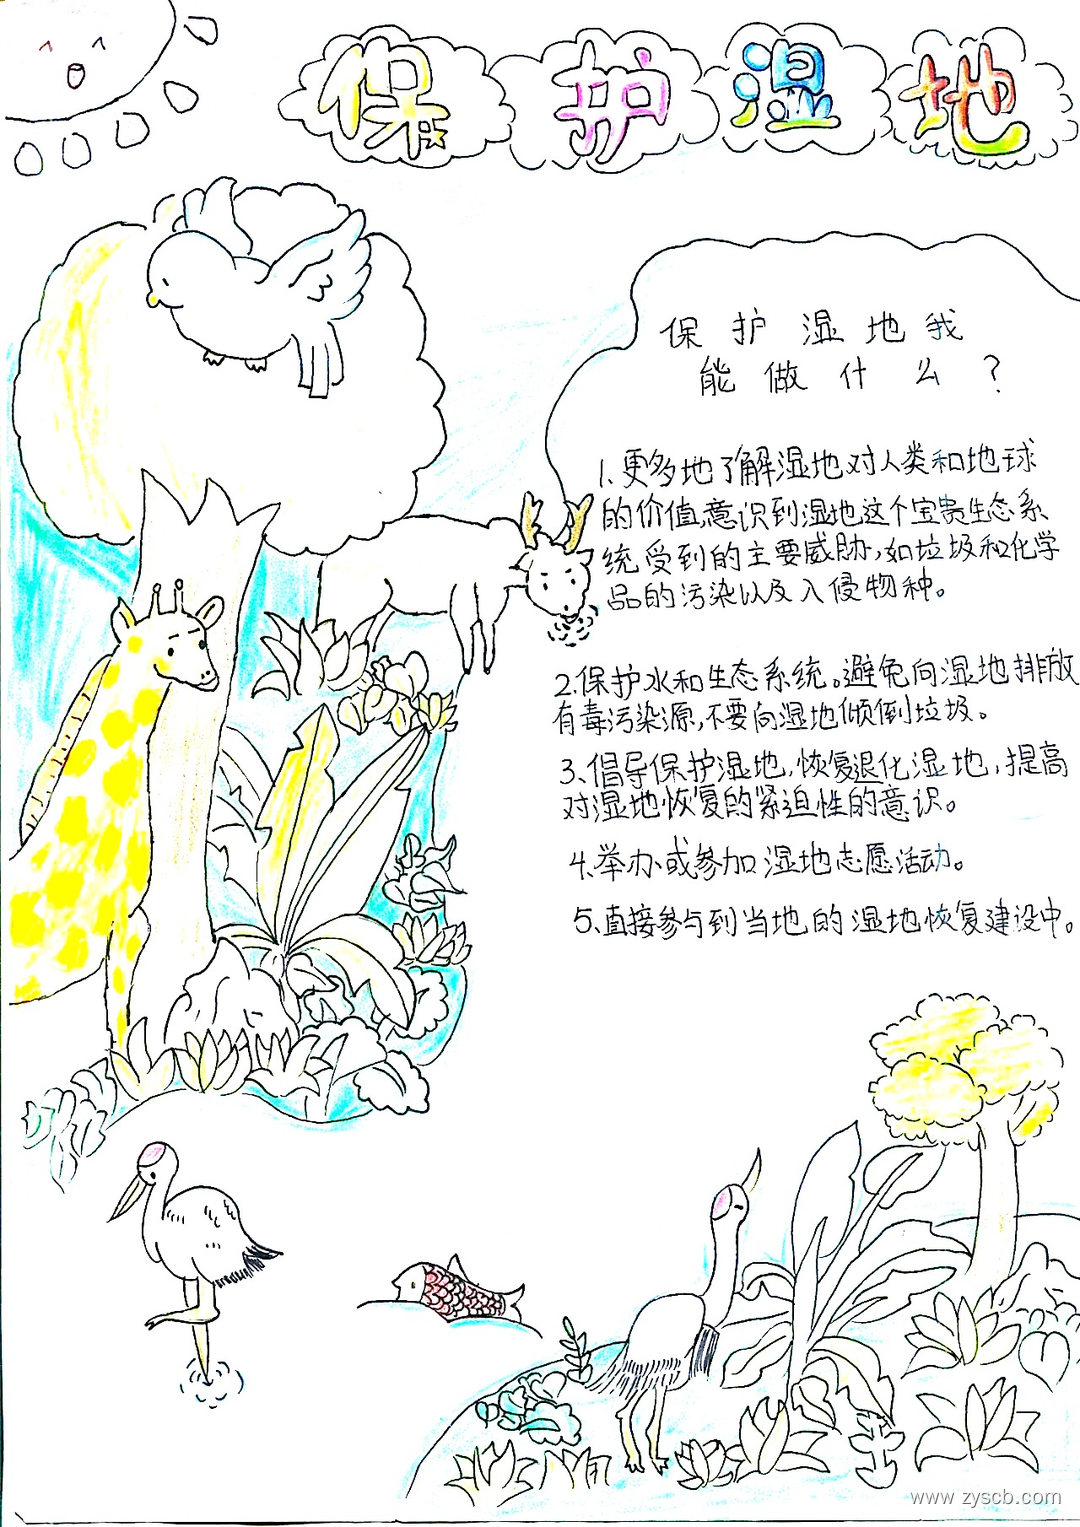 保护湿地
保护湿地我
能做什么?
1、更多地了解湿地对人类和地球
的价值,意识到湿地这个宝贵生态系
统受到的主要威胁,如垃圾和化学
品的污染以及入侵物种。
2、保护水和生态系统。避免向湿地排放
有毒污染源,不要向湿地倾倒垃圾。
3、倡导保护湿地,恢复退化湿地,提高
对湿地恢复的紧迫性的意识。
4、举办或参加湿地志愿活动。
5、直接参与到当地的湿地恢复建设中。
www.zyscb.com